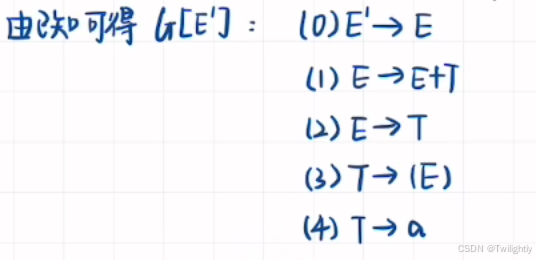 由已知可得 G[E']: (0) E'→ E
(1) E → E+T
(2) E → T
(3) T → (E)
(4) T → a
CSDN @Twilightly